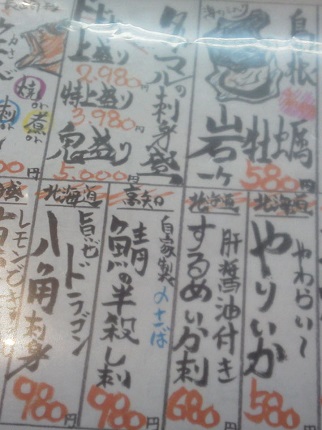 鳥取
岩牡蠣
一ヶ 580円
刺身盛
上盛り
2,980円
特上盛り
3,980円
鬼盛り
5,000円
焼or煮or
北海道
やわらい〜
やりいか
580円
北海道
肝醤油付き
するめいか刺
680円
高知
自家製のさば
鯖の半殺し刺
980円
北海道
旨いゼドラゴン
八角刺身
980円
レモンで
980円